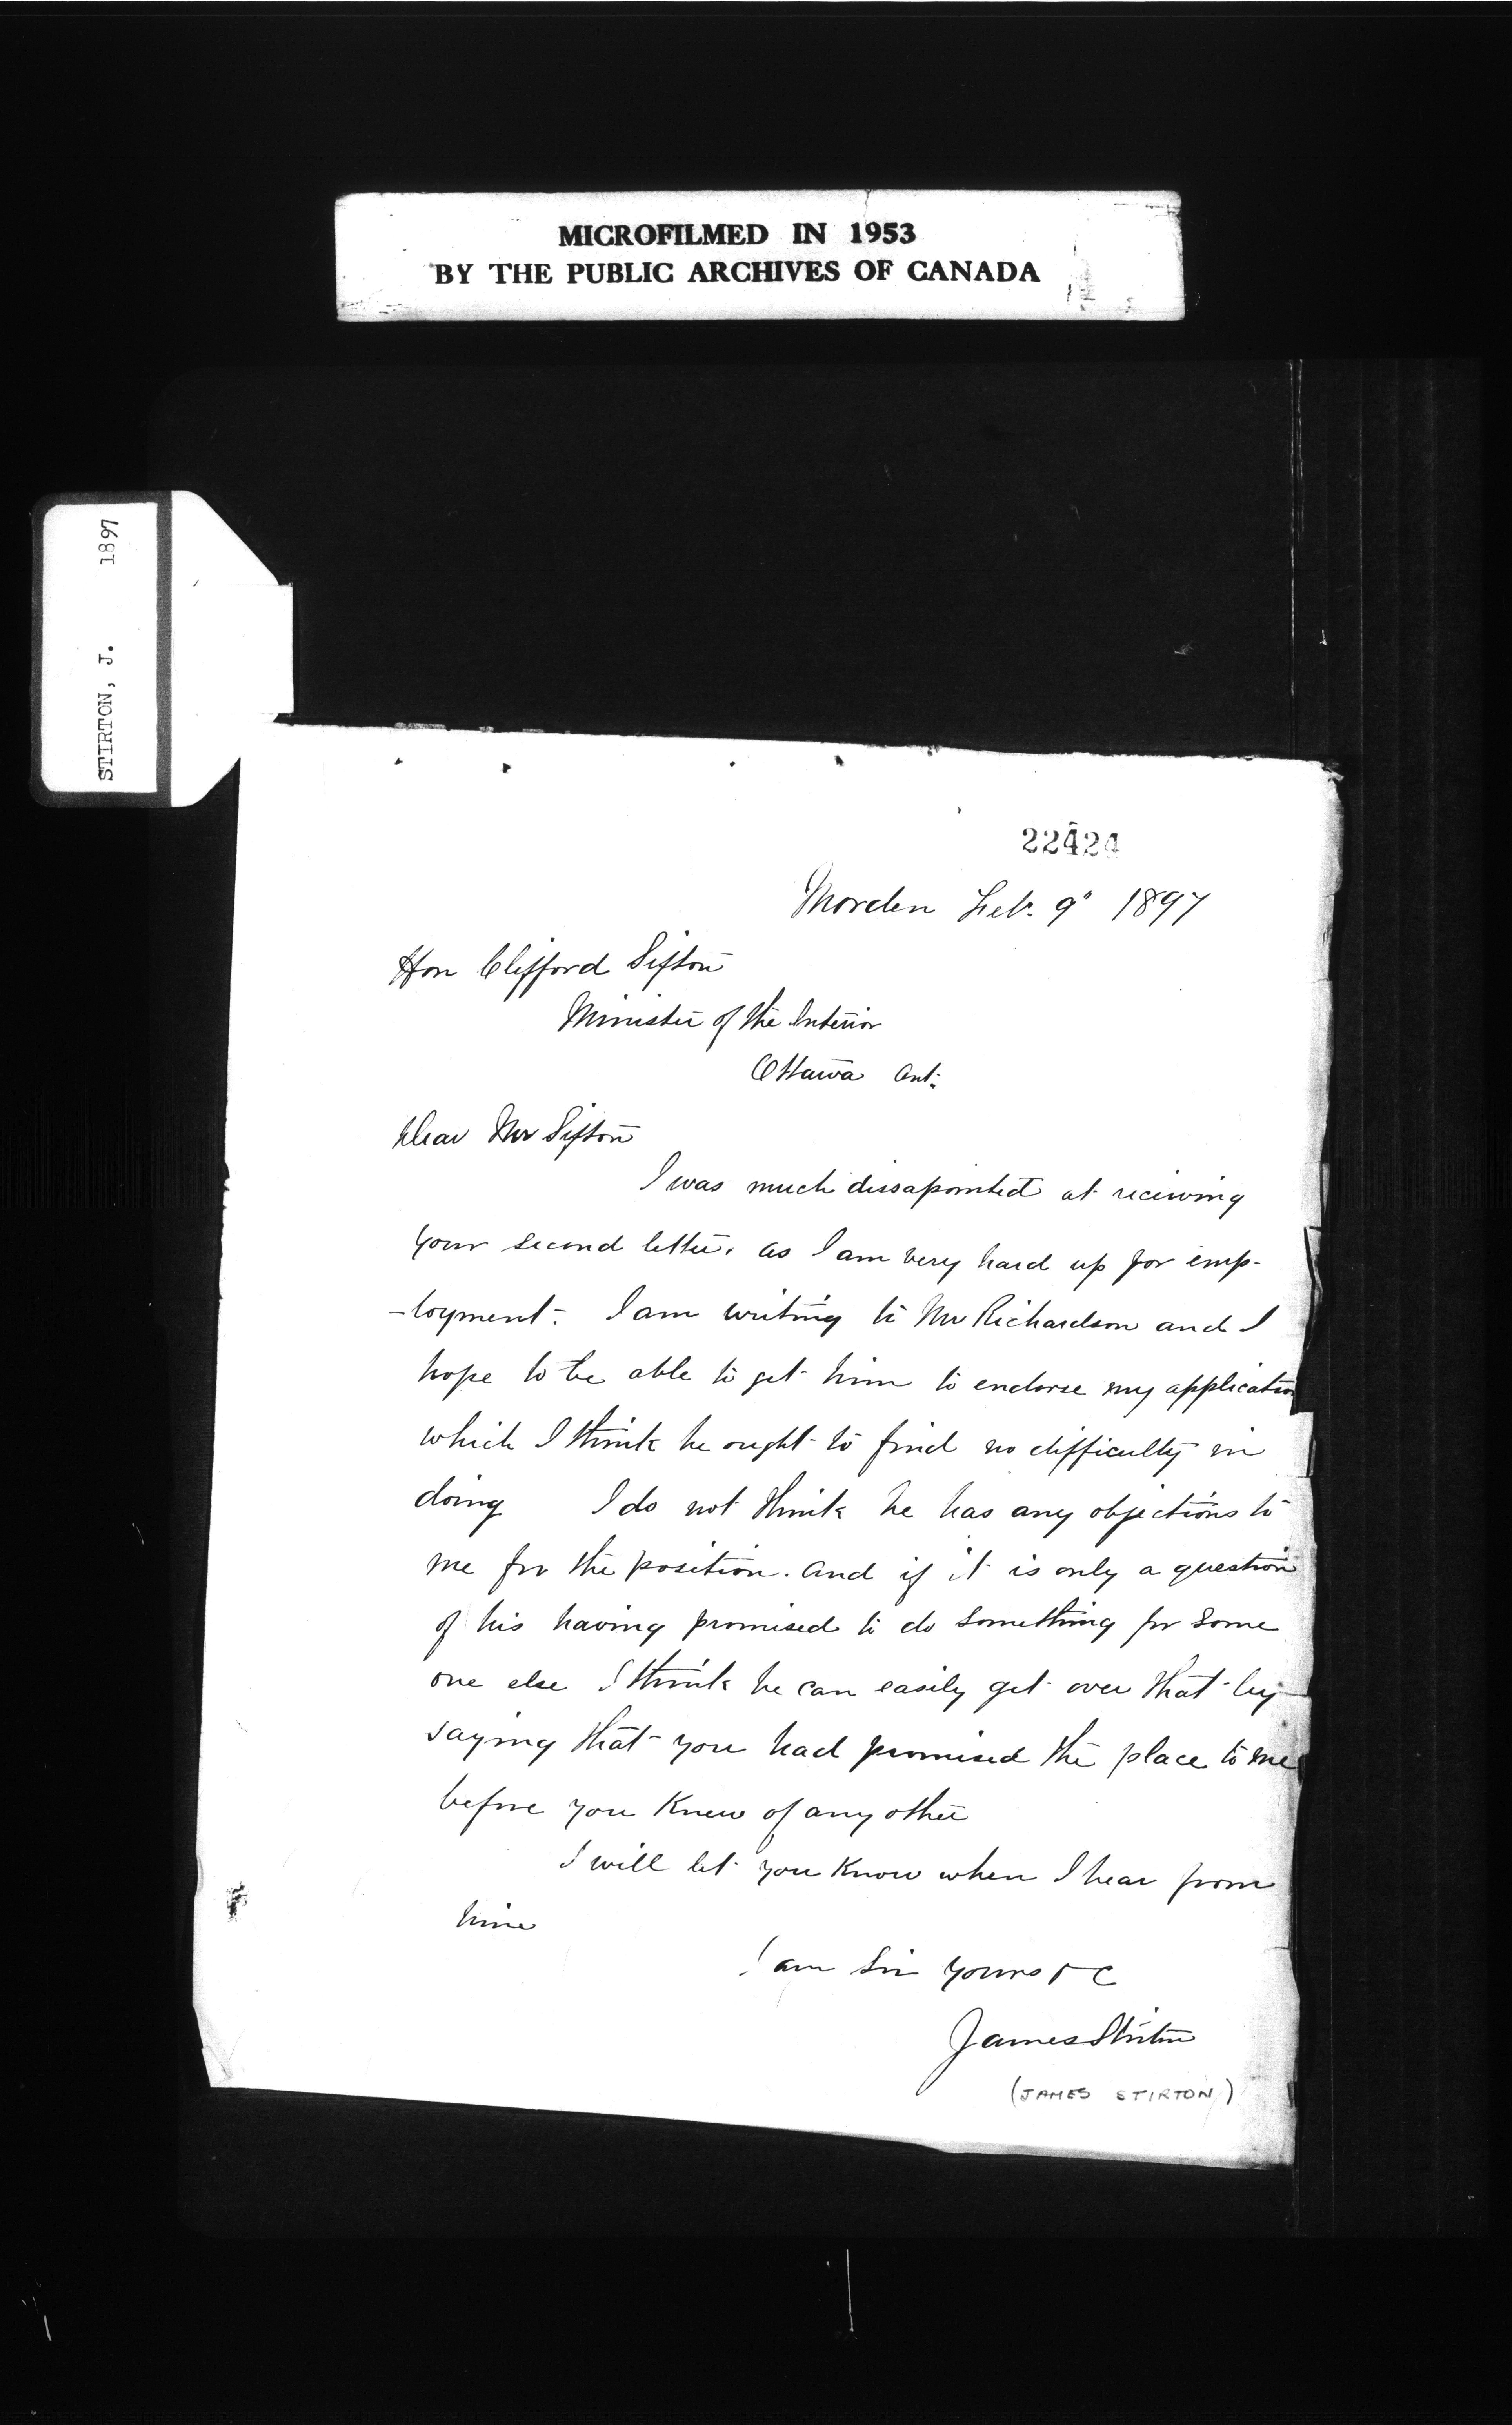 MICROFILMED IN 1953
BY THE PUBLIC ARCHIVES OF CANADA
STIRTON, J. 1897
22424
Morden Feb. 9" 1897
Hon Clifford Sifton
Minister of the Interior
Ottawa Ont.
Dear Mr Sifton
I was much dissapointed at receiving
your second letter. as I am very hard up for emp-
-loyment. I am writing to Mr Richardson and I
hope to be able to get him to endorse my application
which I think he ought to find no difficulty in
doing I do not think he has any objections to
me for the position. and if it is only a question
of his having promised to do something for some
one else I think he can easily get over that by
saying that you had promised the place to me
before you knew of any other
I will let you know when I hear from
him
I am Sir yours &c
James Stirton
(JAMES STIRTON)